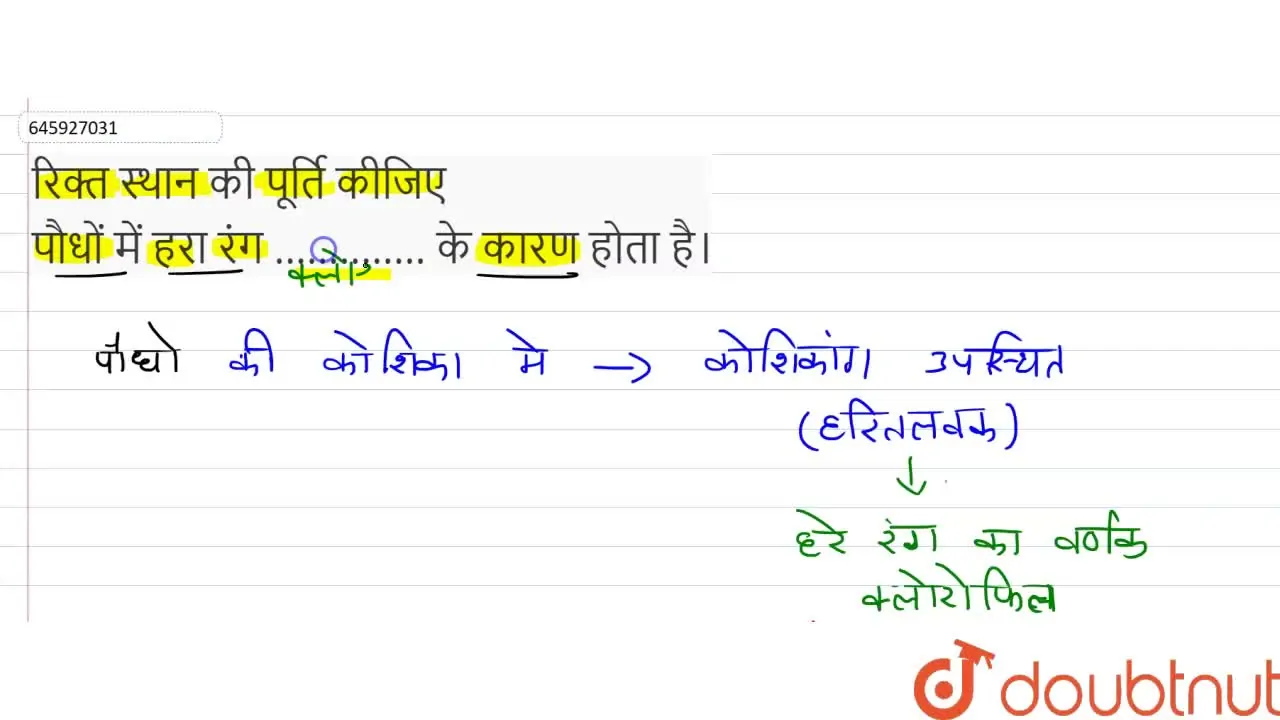 645927031
रिक्त स्थान की पूर्ति कीजिए
पौधों में हरा रंग .............. के कारण होता है।
क्लो
पौधो की कोशिका मे → कोशिकांग उपस्थित
(हरितलवक)
↓
हरे रंग का वर्णक
क्लोरोफिल
doubtnut